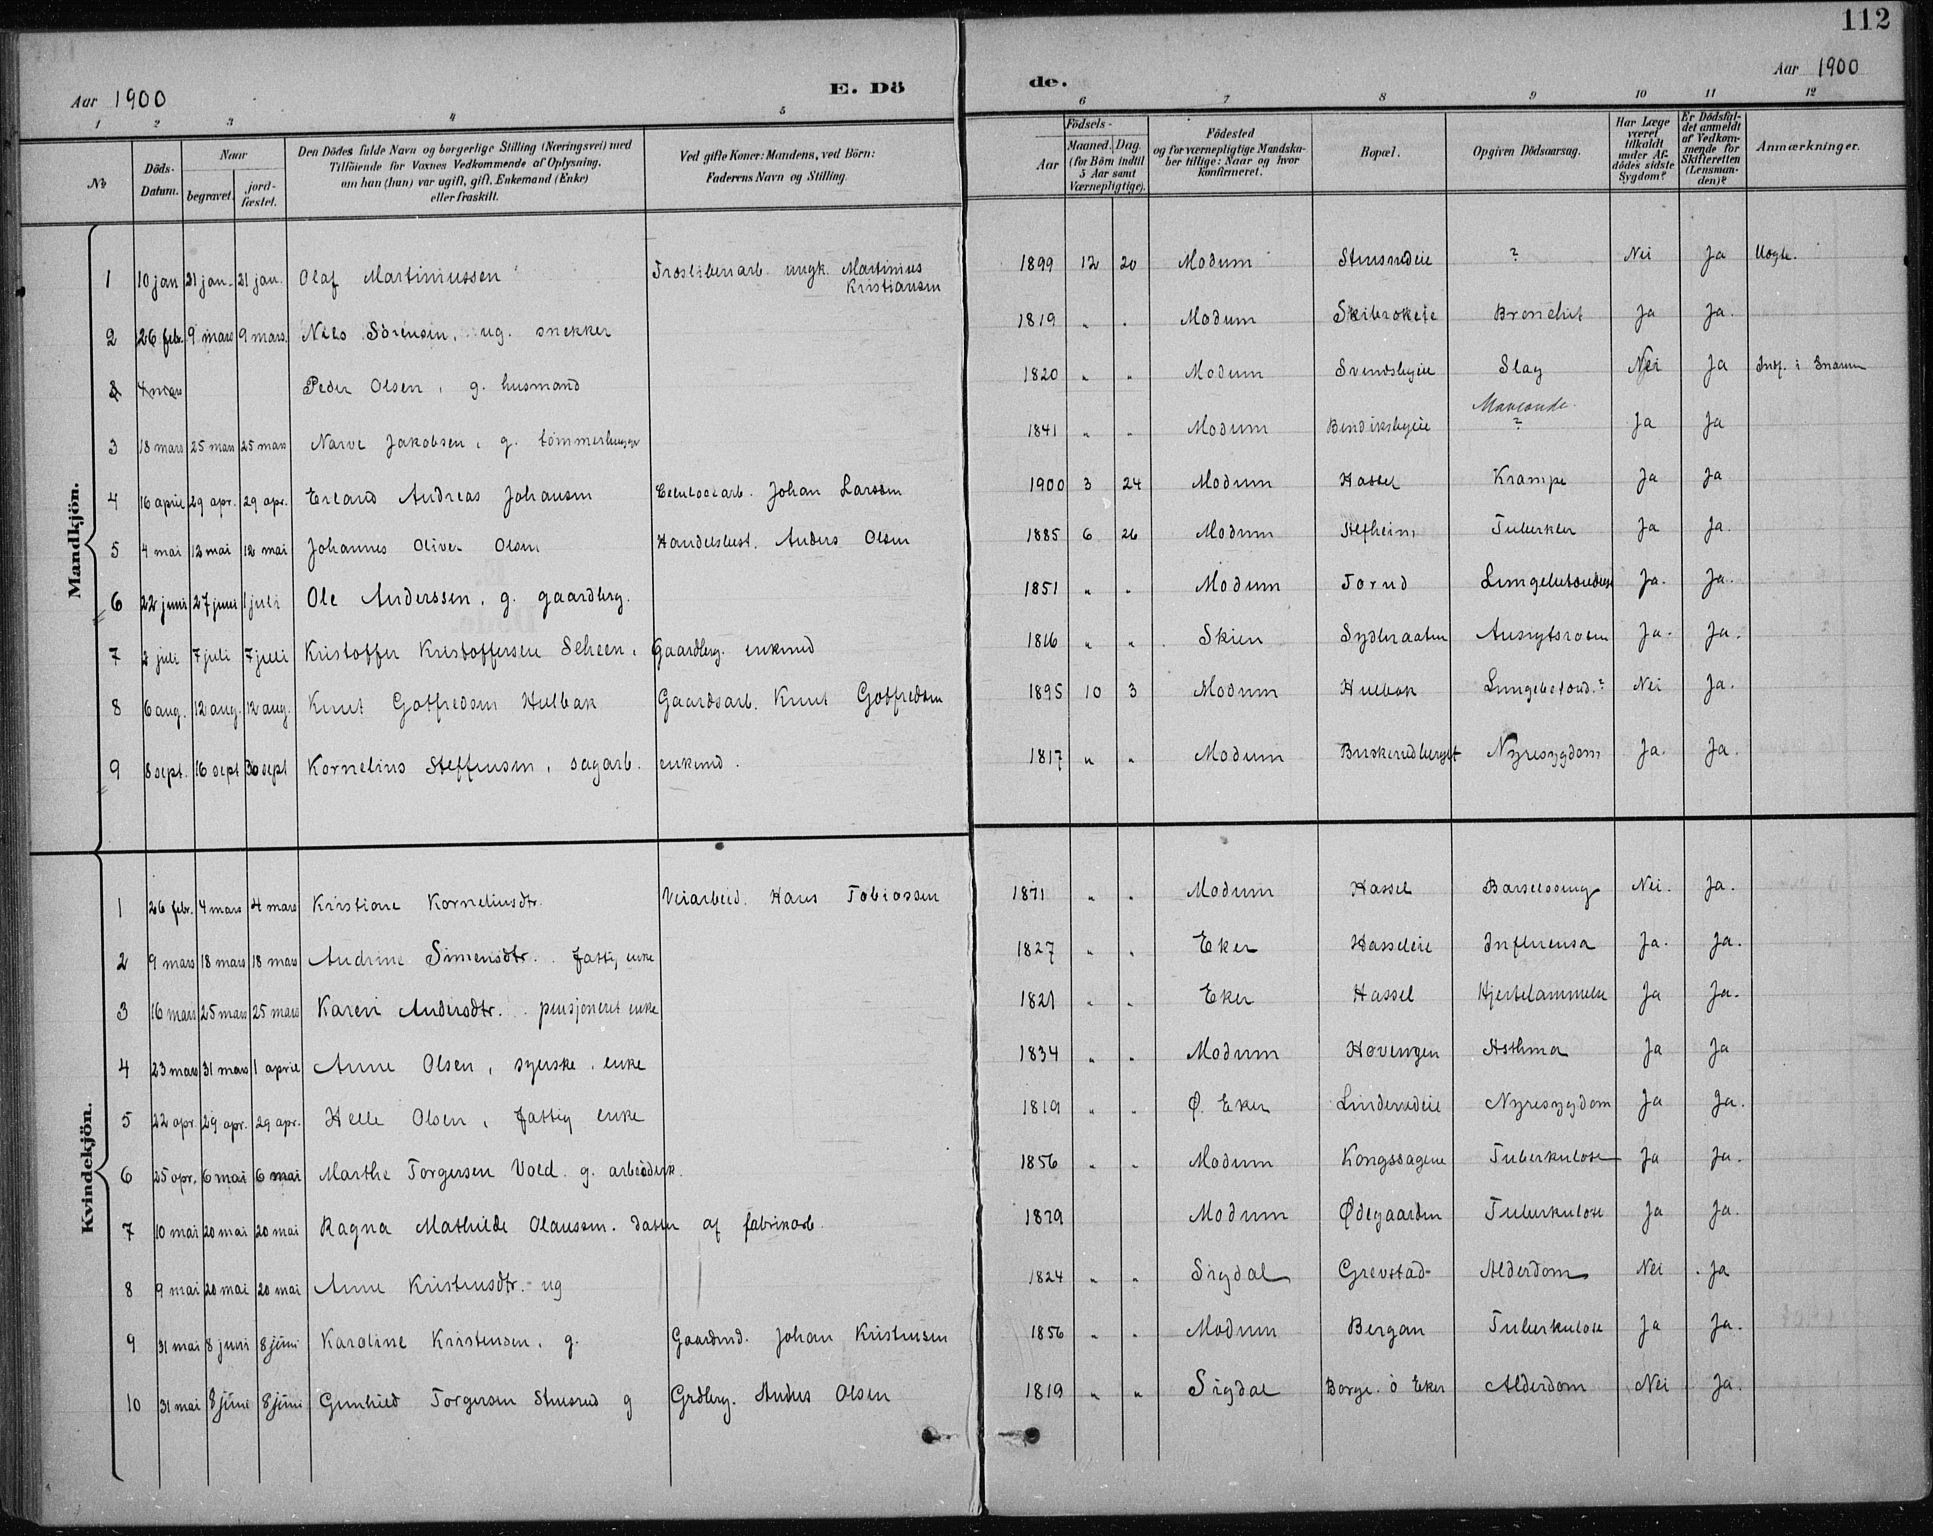 112
Aar 1900
E. Dö
de.
Aar 1900
1 2 3 4 5 6 7 8 9 10 11 12
No
Döds-
Datum.
Naar
begravet.
jord-
fæstet.
Den Dödes fulde Navn og borgerlige Stilling (Næringsvei) med
Tilföiende for Voxnes Vedkommende af Oplysning,
om han (hun) var ugift, gift, Enkemand (Enke)
eller fraskilt.
Ved gifte Koner: Mandens, ved Börn:
Faderens Navn og Stilling.
Födsels-
Aar
Maaned. Dag.
(for Börn indtil
5 Aar samt
Værnepligtige).
Födested
og for værnepligtige Mandska-
ber tillige: Naar og hvor
konfirmeret.
Bopæl.
Opgiven Dödsaarsag.
Har Læge
været
tilkaldt
under Af-
dödes sidste
Sygdom?
Er Dödsfal-
det anmeldt
af Vedkom-
mende for
Skifteretten
(Lensman-
den)?
Anmærkninger.
Mandkjön.
1 10 jan 21 jan. 21 jan. Olaf Martiniussen Træsliberiarb. ungk. Martinius Kristiansen 1899 12 20 Modum ? Nei Ja
2 26 febr. 9 mars 9 mars. Nils Sörensen, ug. snekker 1819 " " Modum Skibrokeie Bronchit Ja Ja.
3 4 mars Peder Olsen, g. husmand 1820 " " Modum Svendsbyeie Slag Nei Ja Indf. i Snarum
3 18 mars 25 mars 25 mars Narve Jakobsen, g. tömmerhugger 1841 " " Modum Bendiksbyeie ? Ja Ja
4 16 april 29 apr. 29 apr. Erland Andreas Johansen Cellulosearb. Johan Larssen 1900 3 24 Modum Hassel Krampe Ja Ja
5 4 mai 12 mai 12 mai Johannes Oliver Olsen Handelsbest. Anders Olsen 1885 6 26 Modum Tuberkler Ja Ja.
6 22 juni 27 juni 1 juli Ole Anderssen, g. gaardbrg. 1851 " " Modum Torud Lungebetændelse Ja. Ja.
7 2 juli 7 juli 7 juli Kristoffer Kristoffersen Scheen, Gaardbrg. enkmd 1816 " " Skien Sydbraaten Ansigtsrosen Ja. Ja.
8 6 aug. 12 aug. 12 aug. Knut Gotfredsen Hulbak Gaardsarb. Knut Gotfredsen 1895 10 3 Modum Hulbak Lungebetænd.? Nei Ja.
9 8 sept. 16 sept 30 sept Kornelius Steffensen, sagarb. enkmd. 1817 " " Modum Buskerudberget Nyresygdom Ja. Ja.
Kvindekjön.
1 26 febr. 4 mars 4 mars Kristiane Korneliusdtr. Veiarbeid. Hans Tobiassen 1871 " " Modum Hassel Barselseng Nei. Ja.
2 9 mars 18 mars 18 mars Andrine Simensdtr. . fattig enke 1827 " " Eker Hasseleie Influensa Ja. Ja.
3 16 mars 25 mars 25 mars Karen Andersdtr. . pensjoneret enke 1821 " " Eker Hassel Hjertelammelse Ja Ja.
4 23 mars 31 mars 1 april Anne Olsen, syerske, enke 1834 " " Modum Hovengen Asthma Ja Ja
5 22 apr. 29 apr. 29 apr. Helle Olsen, fattig enke 1819 " " Ø. Eker Linderudeie Nyresygdom Ja Ja.
6 25 apr. 6 mai 6 mai Marthe Torgersen Vold. g. arbeiderk. 1856 " " Modum Kongssagene Tuberkulose Ja Ja.
7 10 mai 20 mai 20 mai Ragna Mathilde Olaussen. datter af fabrikarb. 1879 Modum Ødegaarden Tuberkulose Ja Ja.
8 9 mai 20 mai 20 mai Anne Kristensdtr. ug 1824 " " Sigdal Grevstad Alderdom Nei Ja
9 31 mai 8 juni 8 juni Karoline Kristensen, g. Gaardmd. Johan Kristensen 1856 " " Modum Bergan Tuberkulose Ja Ja.
10 31 mai 8 juni 8 juni Gunhild Torgersen Stensrud g Grdbrg. Anders Olsen 1819 " " Sigdal Borge. ö Eker Alderdom Nei Ja.